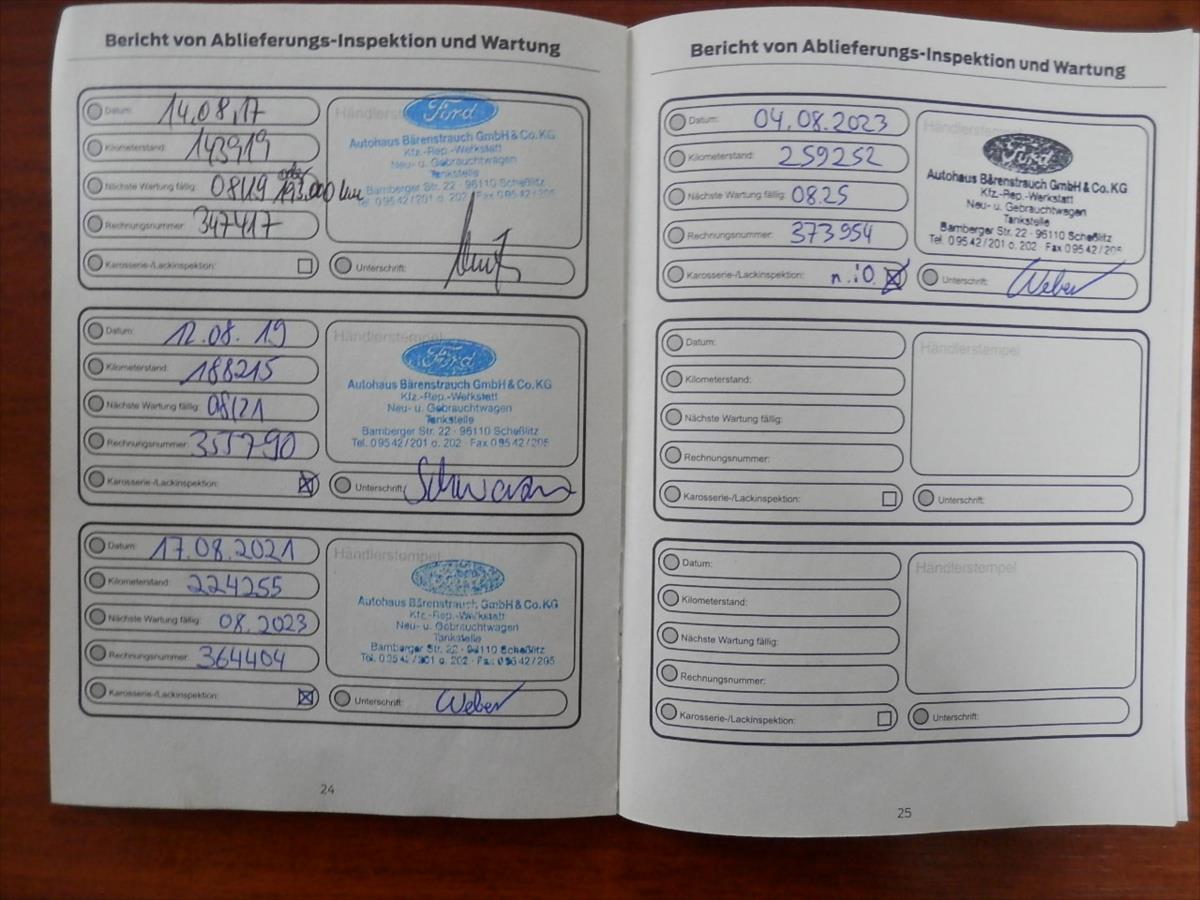 Bericht von Ablieferungs-Inspektion und Wartung
Datum: 14.08.17
Kilometerstand: 143919
Nächste Wartung fällig: 08/19 oder 193.000 km
Rechnungsnummer: 347417
Karosserie-/Lackinspektion:
Ford
Autohaus Bärenstrauch GmbH & Co. KG
Kfz.-Rep.-Werkstatt
Neu- u. Gebrauchtwagen
Tankstelle
Bamberger Str. 22 · 96110 Scheßlitz
Tel. 09542/201 o. 202 · Fax 09542/205
Unterschrift:
Datum: 12.08.19
Kilometerstand: 188215
Nächste Wartung fällig: 08/21
Rechnungsnummer: 355790
Karosserie-/Lackinspektion:
Händlerstempel
Ford
Autohaus Bärenstrauch GmbH & Co. KG
Kfz.-Rep.-Werkstatt
Neu- u. Gebrauchtwagen
Tankstelle
Bamberger Str. 22 · 96110 Scheßlitz
Tel. 09542/201 o. 202 · Fax 09542/205
Unterschrift:
Datum: 17.08.2021
Kilometerstand: 224255
Nächste Wartung fällig: 08.2023
Rechnungsnummer: 364404
Karosserie-/Lackinspektion:
Händlerstempel
Autohaus Bärenstrauch GmbH & Co. KG
Kfz.-Rep.-Werkstatt
Neu- u. Gebrauchtwagen
Tankstelle
Bamberger Str. 22 · 96110 Scheßlitz
Tel. 09542/201 o. 202 · Fax 09542/205
Unterschrift: Weber
24
Bericht von Ablieferungs-Inspektion und Wartung
Datum: 04.08.2023
Kilometerstand: 259252
Nächste Wartung fällig: 08.25
Rechnungsnummer: 373954
Karosserie-/Lackinspektion: n.i.O.
Händlerstempel
Ford
Autohaus Bärenstrauch GmbH & Co. KG
Kfz.-Rep.-Werkstatt
Neu- u. Gebrauchtwagen
Tankstelle
Bamberger Str. 22 · 96110 Scheßlitz
Tel. 09542/201 o. 202 · Fax 09542/205
Unterschrift: Weber
Datum:
Kilometerstand:
Nächste Wartung fällig:
Rechnungsnummer:
Karosserie-/Lackinspektion:
Händlerstempel
Unterschrift:
Datum:
Kilometerstand:
Nächste Wartung fällig:
Rechnungsnummer:
Karosserie-/Lackinspektion:
Händlerstempel
Unterschrift:
25